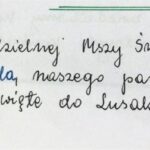 dzielnej Mszy Św
dla naszego pa
więte do Lusak